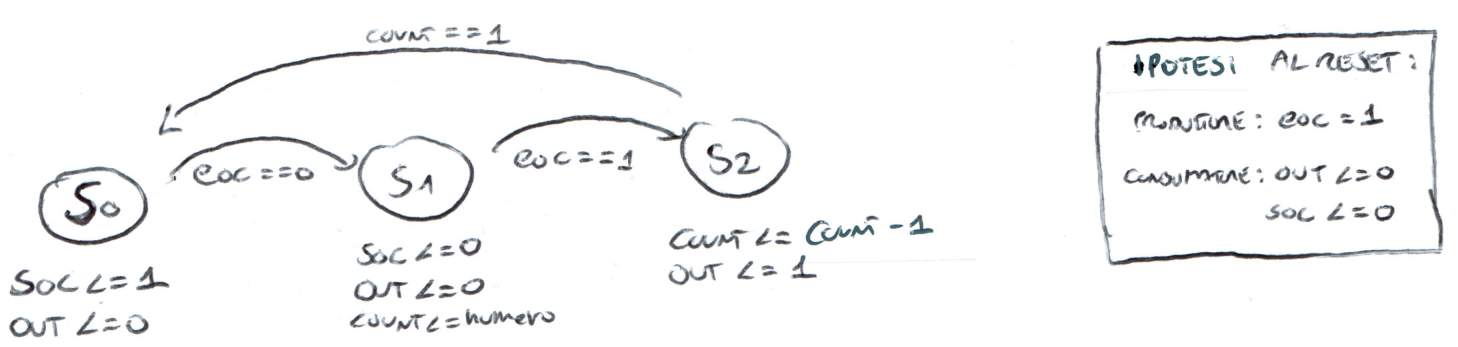 COUNT==1
eoc==0
eoc==1
S0
S1
S2
SOC<=1
OUT<=0
SOC<=0
OUT<=0
COUNT<=numero
COUNT<= COUNT-1
OUT<=1
IPOTESI AL RESET:
PRODUTTORE: eoc=1
CONSUMATORE: OUT<=0
SOC<=0